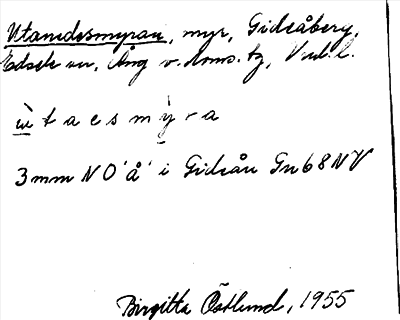 Utanedesmyran, myr, Gideåberg,
Edsele sn, Ång v. doms. tg,
ù t a e s m ý r a
3 mm NO 'å' i Gideån Gn 68 NV
Birgitta Östlund, 1955